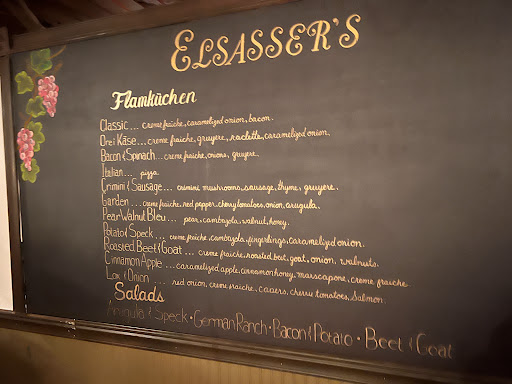 ELSASSER'S
Flamküchen
Classic... creme fraiche, caramelized onion, bacon.
Drei Käse... creme fraiche, gruyere, raclette, caramelized onion.
Bacon & Spinach... creme fraiche, onions, gruyere.
Italian... pizza.
Crimini & Sausage... crimini mushrooms, sausage, thyme, gruyere.
Garden... creme fraiche, red pepper, cherry tomatoes, onion, arugula.
Pear Walnut Bleu... pear, cambozola, walnut, honey.
Potato & Speck... creme fraiche, cambozola, fingerlings, caramelized onion.
Roasted Beet & Goat... creme fraiche, roasted beet, goat, onion, walnuts.
Cinnamon Apple... caramelized apple, cinnamon honey, marscapone, creme fraiche.
Lox & Onion... red onion, creme fraiche, capers, cherry tomatoes, salmon.
Salads
Arugula & Speck · German Ranch · Bacon & Potato · Beet & Goat